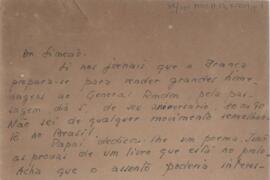 Dr. Simeão.
Li nos jornais que a França
prepara-se para render grandes home-
nagens ao General Rondon pela pas-
sagem dia 5, de seu aniversário
Não sei de qualquer movimento semelhan-
te no Brasil.
Papai dedicou-lhe um poema. Junto
as provas de um livro que está no prelo.
Acha que o assunto poderia interes-